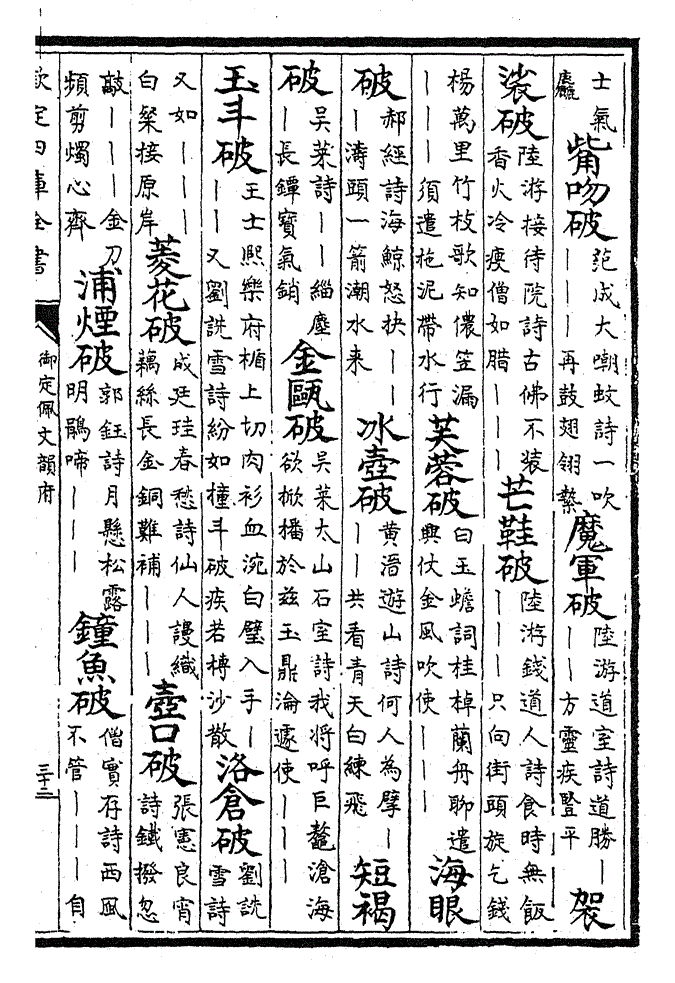 士氣麤觜吻破范成大嘲蚊詩一吹｜｜｜再鼓翅翎縶魔軍破陸游道室詩道勝｜｜｜方靈疾豎平袈
裟破陸游接待院詩古佛不装香火冷瘦僧如腊｜｜｜芒鞋破陸游錢道人詩食時無飯｜｜｜只向街頭旋乞錢
楊萬里竹枝歌知儂笠漏｜｜｜須遣拖泥帶水行芙蓉破白玉蟾詞桂棹蘭舟聊遣興仗金風吹使｜｜｜海眼
破郝經詩海鯨怒抉｜｜｜濤頭一箭潮水来冰壺破黄溍遊山詩何人為擘｜｜｜共看青天白練飛短褐
破吳莱詩｜｜緇塵｜長鐔寳氣銷金甌破吳莱太山石室詩我将呼巨鼇滄海欲掀播於兹玉鼎淪遽使｜｜｜
玉斗破王士熙樂府楯上切肉衫血涴白璧入手｜｜｜又劉詵雪詩紛如撞斗破疾若摶沙散洛倉破劉詵雪詩
又如｜｜｜白粲接原岸菱花破成廷珪春愁詩仙人謾織藕絲長金銅難補｜｜｜壺口破張憲良宵詩鐵撥忽
敲｜｜｜金刀頻剪燭心齊浦煙破郭鈺詩月懸松露明鵑啼｜｜｜鐘魚破僧實存詩西風不管｜｜｜自
欽定四庫全書
御定佩文韻府
三十二